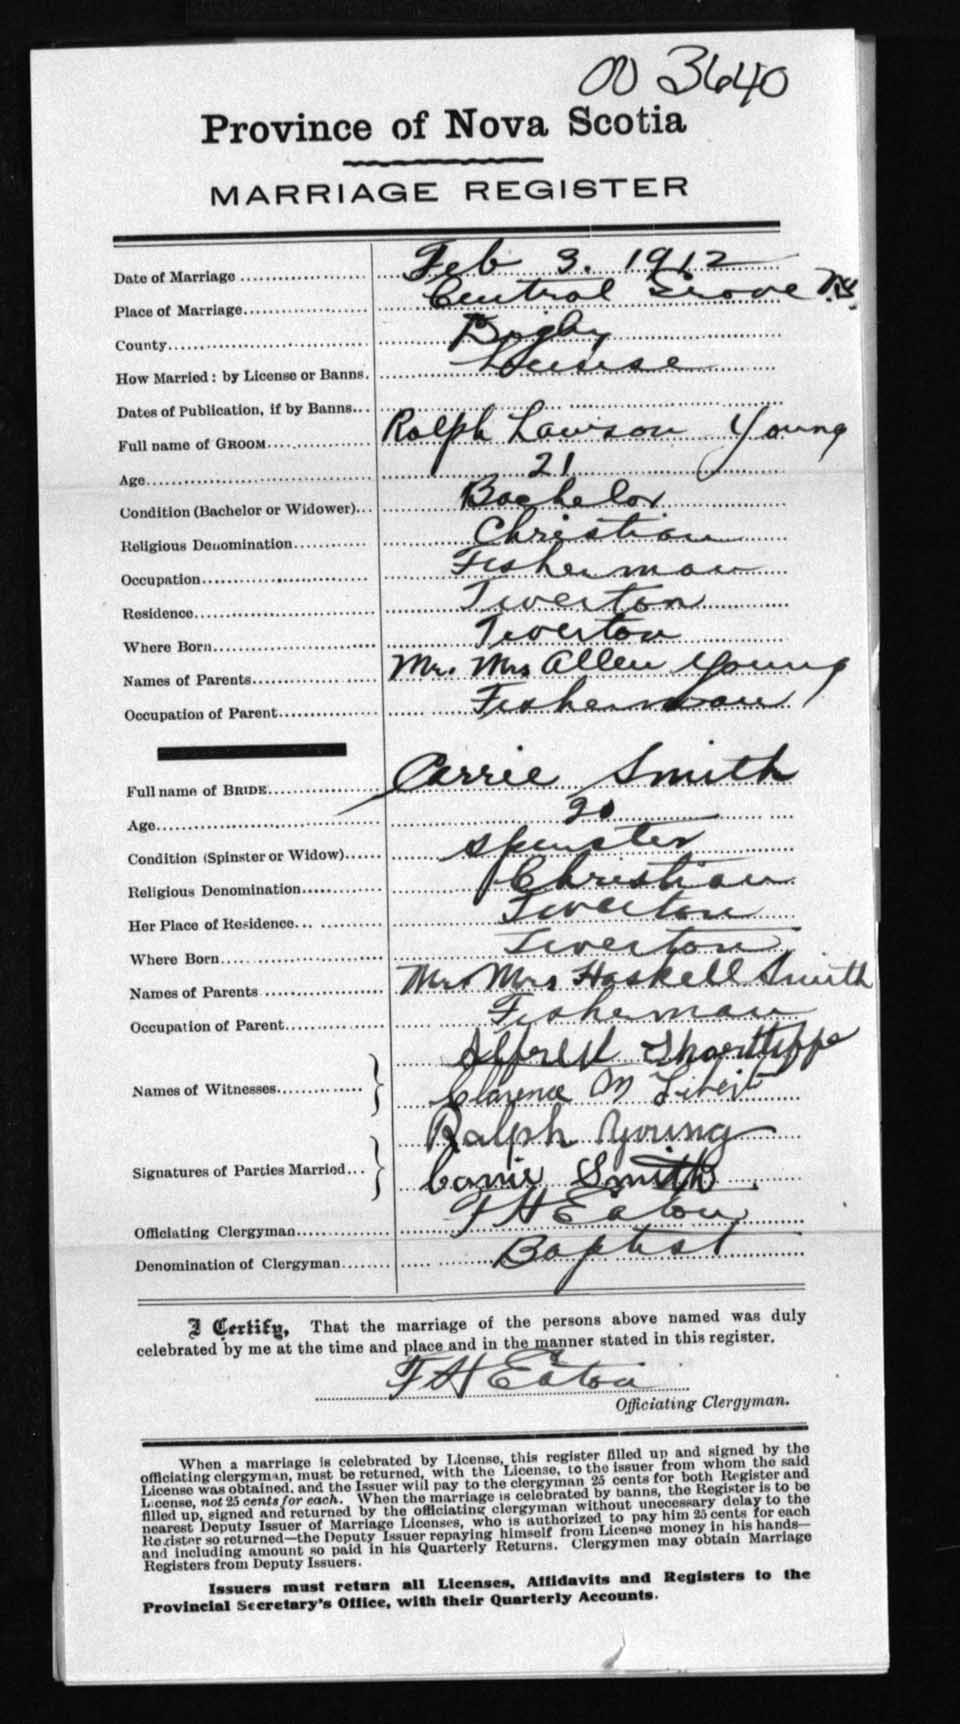 00 3640
Province of Nova Scotia
MARRIAGE REGISTER
Date of Marriage Feb 3. 1912
Place of Marriage Central Grove N.S.
County Digby
How Married: by License or Banns. License
Dates of Publication, if by Banns
Full name of GROOM Ralph Lawson Young
Age 21
Condition (Bachelor or Widower) Bachelor
Religious Denomination Christian
Occupation Fisherman
Residence Tiverton
Where Born Tiverton
Names of Parents Mr. Mrs Allen Young
Occupation of Parent Fisherman
Full name of BRIDE Carrie Smith
Age 20
Condition (Spinster or Widow) Spinster
Religious Denomination Christian
Her Place of Residence Tiverton
Where Born Tiverton
Names of Parents Mr. Mrs Haskell Smith
Occupation of Parent Fisherman
Names of Witnesses Alfred
Clarence M
Signatures of Parties Married Ralph Young
Carrie Smith
Officiating Clergyman F H Eaton
Denomination of Clergyman Baptist
I Certify, That the marriage of the persons above named was duly
celebrated by me at the time and place and in the manner stated in this register.
F H Eaton
Officiating Clergyman.
When a marriage is celebrated by License, this register filled up and signed by the
officiating clergyman, must be returned, with the License, to the issuer from whom the said
License was obtained, and the Issuer will pay to the clergyman 25 cents for both Register and
License, not 25 cents for each. When the marriage is celebrated by banns, the Register is to be
filled up, signed and returned by the officiating clergyman without unnecessary delay to the
nearest Deputy Issuer of Marriage Licenses, who is authorized to pay him 25 cents for each
Register so returned—the Deputy Issuer repaying himself from License money in his hands—
and including amount so paid in his Quarterly Returns. Clergymen may obtain Marriage
Registers from Deputy Issuers.
Issuers must return all Licenses, Affidavits and Registers to the
Provincial Secretary's Office, with their Quarterly Accounts.